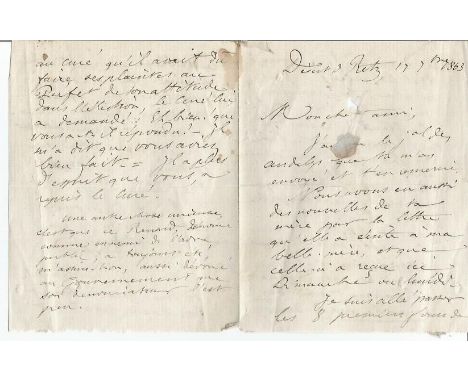 au curé qu'il avait dû
faire ses plaintes au
Préfet de son attitude
dans l'élection, le curé lui
a demandé : Eh bien, que
vous a-t-il répondu? — Il
m'a dit que vous aviez
bien fait = Il a plus
d'esprit que vous, a
repris le curé.
Une autre chose curieuse,
c'est que ce Renard,
comme ennemi de l'ordre
public, a toujours été,
m'a-t-on dit, aussi dévoué
au Gouvernement que
son dénonciateur l'est
peu.
17 7bre 1863
Mon cher ami,
J'ai reçu le
que tu m'as
envoyé et t'en remercie.
Nous avons eu aussi
des nouvelles de ta
mère par la lettre
qu'elle a écrite à ma
belle-mère, et que
celle-ci a reçue ici
Dimanche ou Lundi.
Je suis allé passer
les 8 premiers jours de